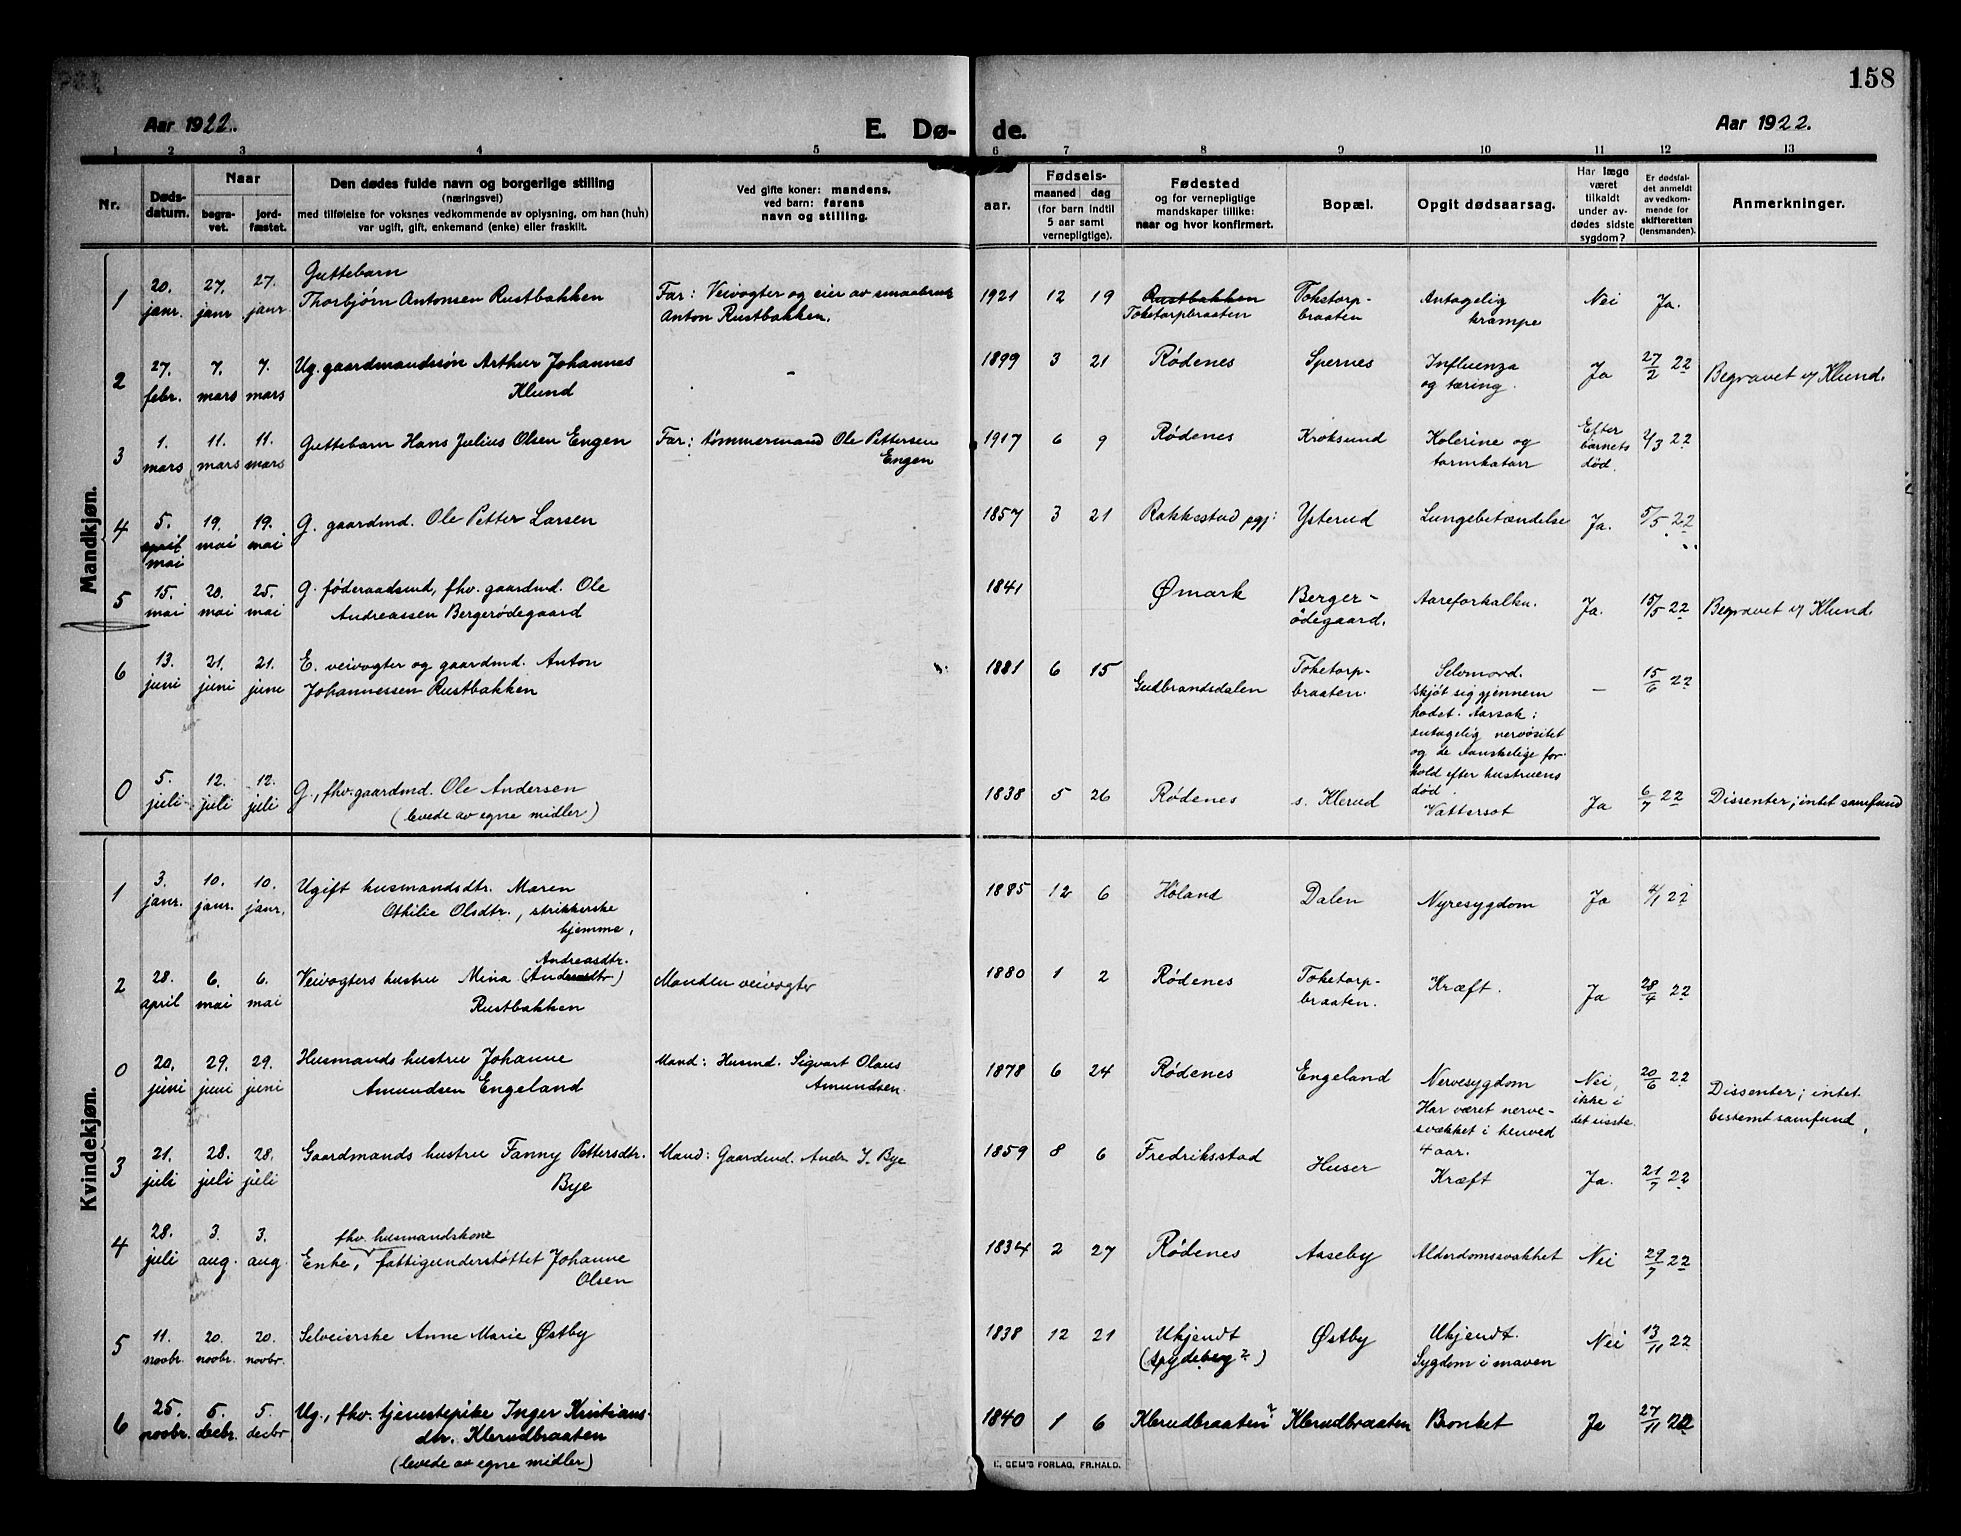 158
Aar 1922.
E. Dø- de.
Aar 1922.
1 2 3 4 5 6 7 8 9 10 11 12 13
Nr.
Døds-
datum.
Naar
begra-
vet.
jord-
fæstet.
Den dødes fulde navn og borgerlige stilling
(næringsvei)
med tilføielse for voksnes vedkommende av oplysning, om han (hun)
var ugift, gift, enkemand (enke) eller fraskilt.
Ved gifte koner: mandens,
ved barn: farens
navn og stilling.
Fødsels-
aar.
maaned dag
(for barn indtil
5 aar samt
vernepligtige).
Fødested
og for vernepligtige
mandskaper tillike:
naar og hvor konfirmert.
Bopæl.
Opgit dødsaarsag.
Har læge
været
tilkaldt
under av-
dødes sidste
sygdom?
Er dødsfal-
det anmeldt
av vedkom-
mende for
skifteretten
(lensmanden).
Anmerkninger.
Mandkjøn.
1
20. janr.
27. janr
27. janr
Guttebarn
Thorbjørn Antonsen Rustbakken
Far: Veivogter og eier av smaabruk
Anton Rustbakken.
1921 12 19
Rustbakken
Toketorpbraaten
Toketorp-
braaten
Antagelig
krampe
Nei
Ja.
2
27. febr.
7. mars
7. mars
Ug. gaardmandssøn Arthur Johannes
Klund
-
1899 3 21
Rødenes
Spernes
Influenza
og tæring.
Ja
27/2 22
Begravet v/ Klund.
3
1. mars
11. mars
11. mars
Guttebarn Hans Julius Olsen Engen
Far: tømmermand Ole Pettersen
Engen
1917 6 9
Rødenes
Kroksund
Kolerine og
tarmkatarr
Efter
barnets
død.
2/3 22
4
5. april
mai
19. mai
19. mai
G. gaardmd. Ole Petter Larsen
1857 3 21
Rakkestad pgj:
Ysterud
Lungebetændelse
Ja.
5/5 22
5
15. mai
20. mai
25. mai
G. føderaadsmd, fhv. gaardmd. Ole
Andreassen Bergerødegaard
1841
Ømark
Berger-
ødegaard.
Aareforkalkn.
Ja.
15/5 22
Begravet v/ Klund.
6
13. juni
21. juni
21. june
E. veivogter og gaardmd. Anton
Johannessen Rustbakken
1881 6 15
Gudbrandsdalen
Toketorp-
braaten.
Selvmord.
Skjøt sig gjennem
hodet. Aarsak:
antagelig nervøsitet
og de vanskelige for-
hold efter hustruens
død.
-
15/6 22
0
5. juli
12. juli
12. juli
G., fhv. gaardmd. Ole Andersen
(levede av egne midler)
1838 5 26
Rødenes
s. Klerud
Vattersot
Ja
6/7 22
Dissenter; intet samfund
Kvindekjøn.
1
3. janr.
10. janr.
10. janr.
Ugift husmandsdtr. Maren
Othilie Olsdtr., strikkerske
hjemme,
1885 12 6
Høland
Dalen
Nyresygdom
Ja
4/1 22
2
28. april
6. mai
6. mai
Andreasdtr.
Veivogters hustru Mina (Andreasdtr)
Rustbakken
Manden veivogter
1880 1 2
Rødenes
Toketorp-
braaten.
Kræft.
Ja
28/4 22
0
20. juni
29. juni
29. juni
Husmands hustru Johanne
Amundsen Engeland
Mand: Husmd. Sigvart Olaus
Amundsen
1878 6 24
Rødenes
Engeland
Nervesygdom
Har været nerve-
svækket i henved
4 aar.
Nei,
ikke i
det sisste.
20/6 22
Dissenter; intet
bestemt samfund,
3
21. juli
28. juli
28. juli
Gaardmands hustru Fanny Pettersdtr.
Bye
Mand: Gaardmd. Andr J. Bye
1859 8 6
Fredriksstad
Huser
Kræft
Ja.
21/7 22
4
28. juli
3. aug.
3. aug.
fhv. husmandskone
Enke, fattigunderstøttet Johanne
Olsen
1834 2 27
Rødenes
Aaseby
Alderdomssvakhet
Nei
29/7 22
5
11. novbr.
20. novbr.
20. novbr.
Selveierske Anne Marie Østby
1838 12 21
Ukjendt
(Spydeberg?)
Østby
Ukjendt.
Sygdom i maven
Nei
13/11 22
6
25. novbr.
5. decbr.
5. decbr
Ug., fhv. tjenestepike Inger Kristians-
dtr. Klerudbraaten
(levede av egne midler)
1840 1 6
Klerudbraaten?
Klerudbraaten
Bronket
Ja
27/11 22
FORLAG, FR.HALD.